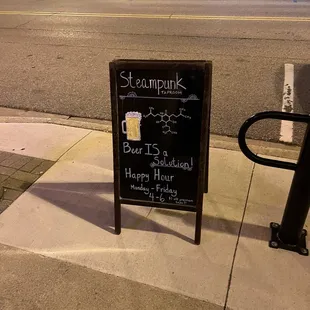 Steampunk
TAPROOM
Beer IS a
Solution!
Happy Hour
Monday - Friday
4-6